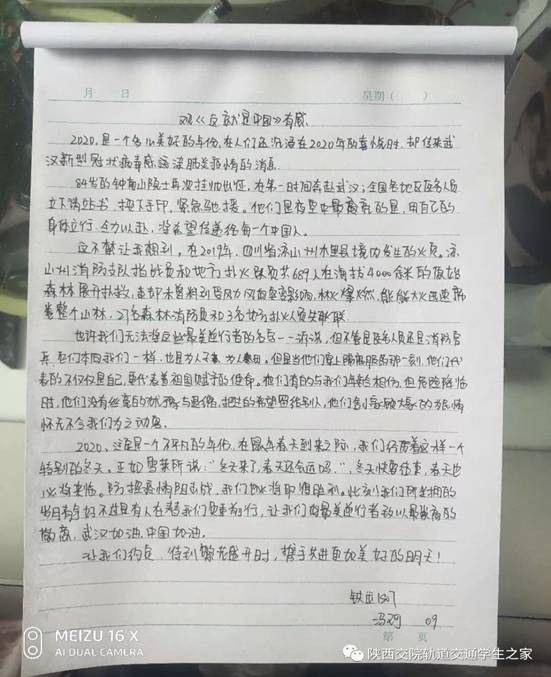 月 日 星期( )
观《这就是中国》有感
2020,是一个多么美好的年份,在人们还沉浸在2020年的喜悦时,却传来武
汉新型冠状病毒感染肺炎疫情的消息
84岁的钟南山院士再次挂帅出征,在第一时间奔赴武汉;全国各地医护人员
立下请战书,按下手印,紧急驰援。他们是夜里中最亮的星,用自己的
身体力行,全力以赴,将希望传递给每一个中国人。
这不禁让我想到,在2019年,四川省凉山州木里县境内发生的火灾。凉
山州消防支队指战员和地方扑火队员共689人在海拔4000余米的原始
森林展开扑救,
整个山林,27名森林消防员和3名地方扑火人员失联
也许我们无法将这些最美逆行者的名字一一诉说,但不管是医务人员还是消防官
兵,他们本同我们一样,也是为人子女,为人父母,但是当他们穿上隔离服的那一刻,他们代
表的不仅仅是自己,更代表着祖国赋予的使命。他们有的与我们年龄相仿,但危险降临
时,他们没有丝毫的犹豫与退缩,把生的希望留给别人,他们
怀无不令我们为之动容。
2020,注定是一个不平凡的年份,在鼠年春天到来之际,我们经历着这样一个
特别的冬天。正如雪莱所说:“冬天来了,春天还会远吗。”,冬天快要结束,春天也
必将来临。防控疫情阻击战,我们也必将取得胜利。此刻我们所坐拥的
岁月静好不过是有人在替我们负重前行,让我们向最美逆行者致以最崇高的
敬意,武汉加油,中国加油。
让我们约定,待到繁花盛开时,携手共进更加美好的明天!
铁运
09
第 页
MEIZU 16 X
AI DUAL CAMERA
陕西交院轨道交通学生之家